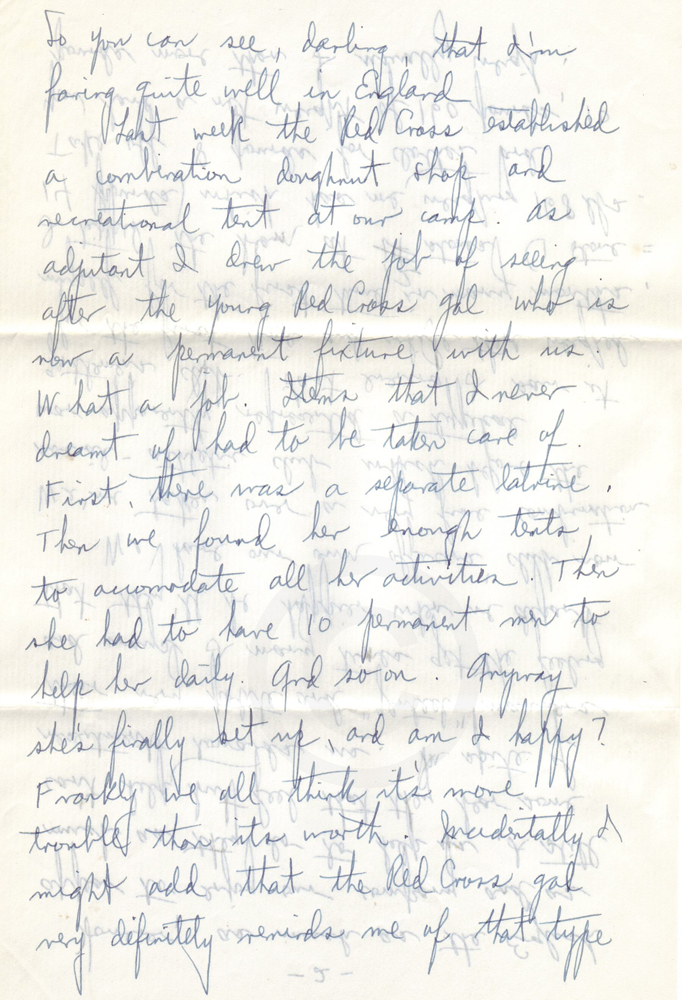 So you can see, darling, that I'm
faring quite well in England
Last week the Red Cross established
a combination doughnut shop and
recreational tent at our camp. As
adjutant I drew the job of seeing
after the young Red Cross gal who is
now a permanent fixture with us.
What a job. Items that I never
dreamt of had to be taken care of.
First, there was a separate latrine.
Then we found her enough tents
to accomodate all her activities. Then
she had to have 10 permanent men to
help her daily. And so on. Anyway
she's finally set up, and am I happy?
Frankly we all think it's more
trouble than its worth. Incidentally I
might add that the Red Cross gal
very definitely reminds me of that type
-2-